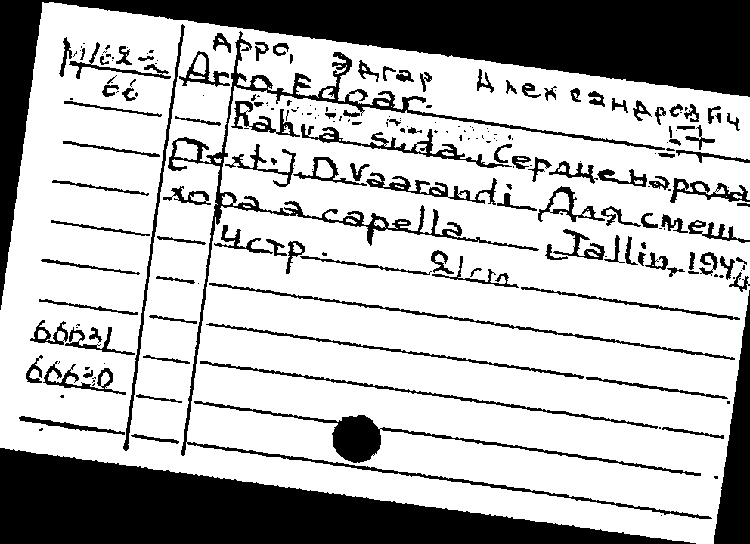 Арро, Эдгар Александрович
М162-2 Arro, Edgar.
66
Rahva süda. Сердце народа
[Text.] D. Vaarandi. Для смеш.
хора a capella. Tallin, 1947
4 стр. 21 cm
66631
66630